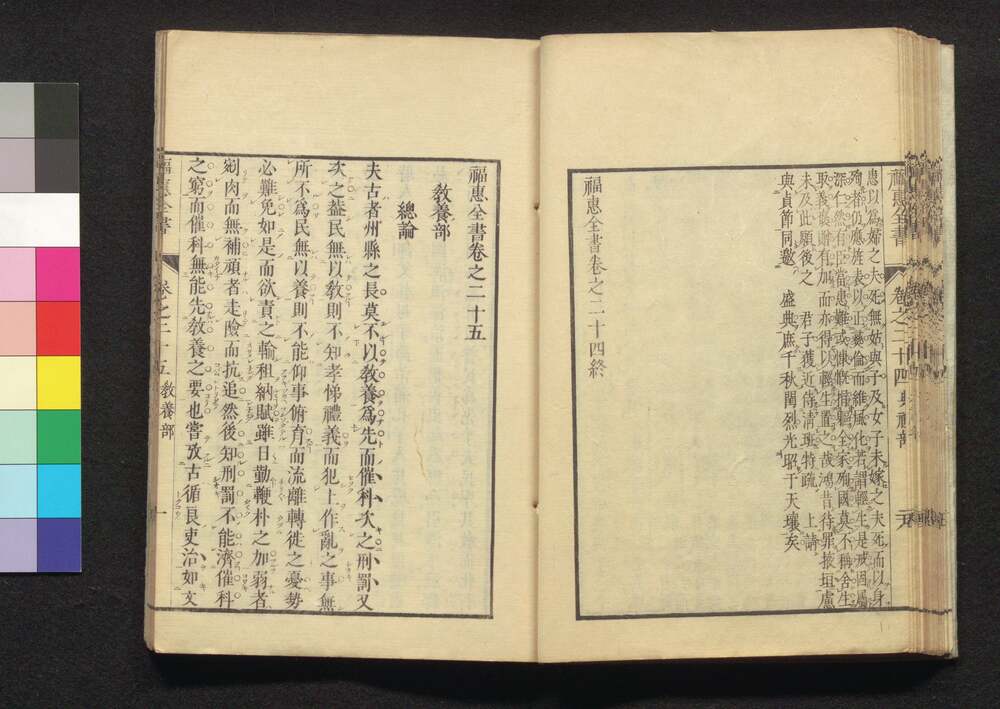 愚以爲婦之夫死無姑與子及女子未嫁之夫死而以身
殉者仍應旌表以正彝倫而維風化若謂輕生是戒因屬
深仁然有臣當患難或慷慨捐軀全家殉國莫不稱舍生
取義襃贈有加而亦得以輕生置之哉鴻昔待罪掖垣慮
未及此願後之　君子獲近偫清班特疏　上請
與貞節同邀　盛典庶千秋閨烈光昭于天壤矣
福惠全書卷之二十四終
福惠全書卷之二十五
教養部
總論
夫古者州縣之長莫不以教養爲先而催科次之刑罰又
次之葢民無以教則不知孝悌禮義而犯上作亂之事無
所不爲民無以養則不能仰事俯育而流離轉徙之憂勢
必難免如是而欲責之輸租納賦雖日勤鞭朴之加弱者
剜肉而無補頑者走險而抗追然後知刑罰不能濟催科
之窮而催科無能先教養之要也嘗攷古循良吏治如文
福惠全書　卷之二十五　教養部　一